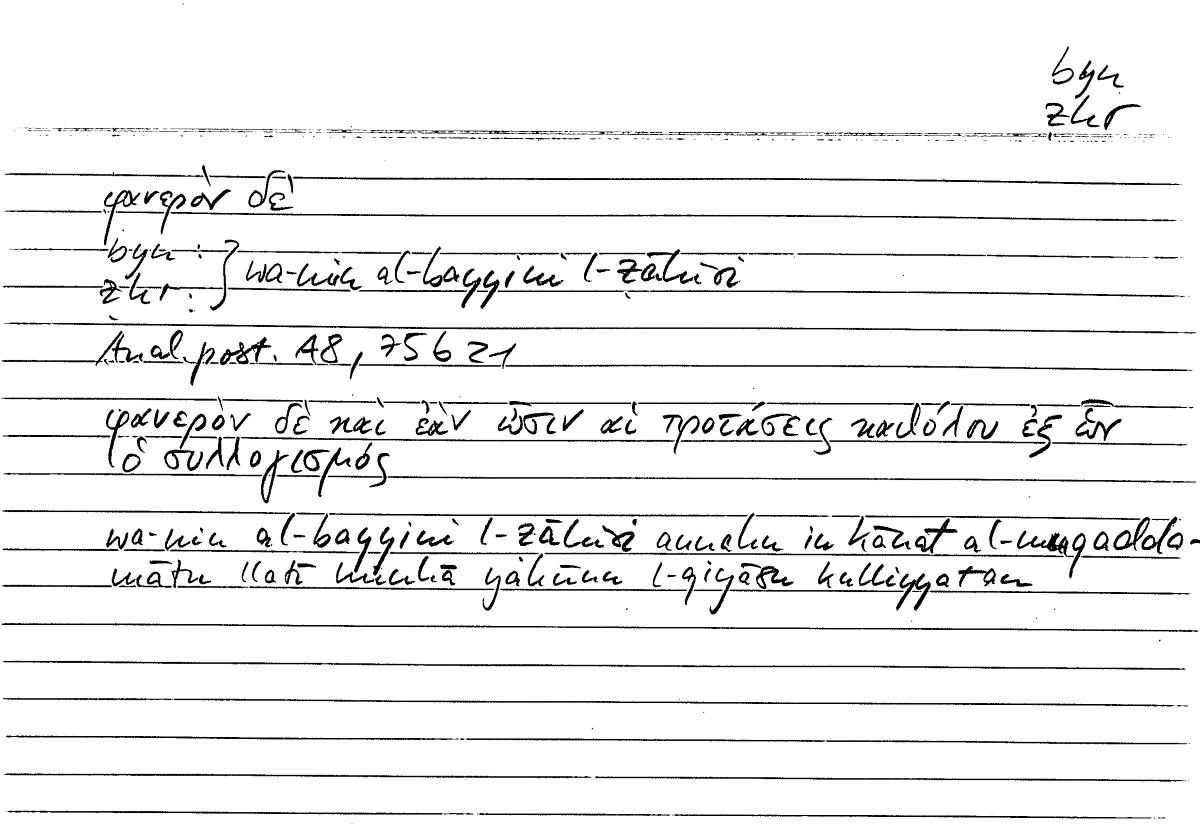 byn
ẓhr
φανερὸν δὲ
byn :
ẓhr : } wa-min al-bayyini l-ẓāhiri
Anal. post. A8, 75 b 21
φανερὸν δὲ καὶ ἐὰν ὦσιν αἱ προτάσεις καθόλου ἐξ ὧν
ὁ συλλογισμός
wa-min al-bayyini l-ẓāhiri annahu in kānat al-muqadda-
mātu llatī minhā yakūnu l-qiyāsu kulliyyatan